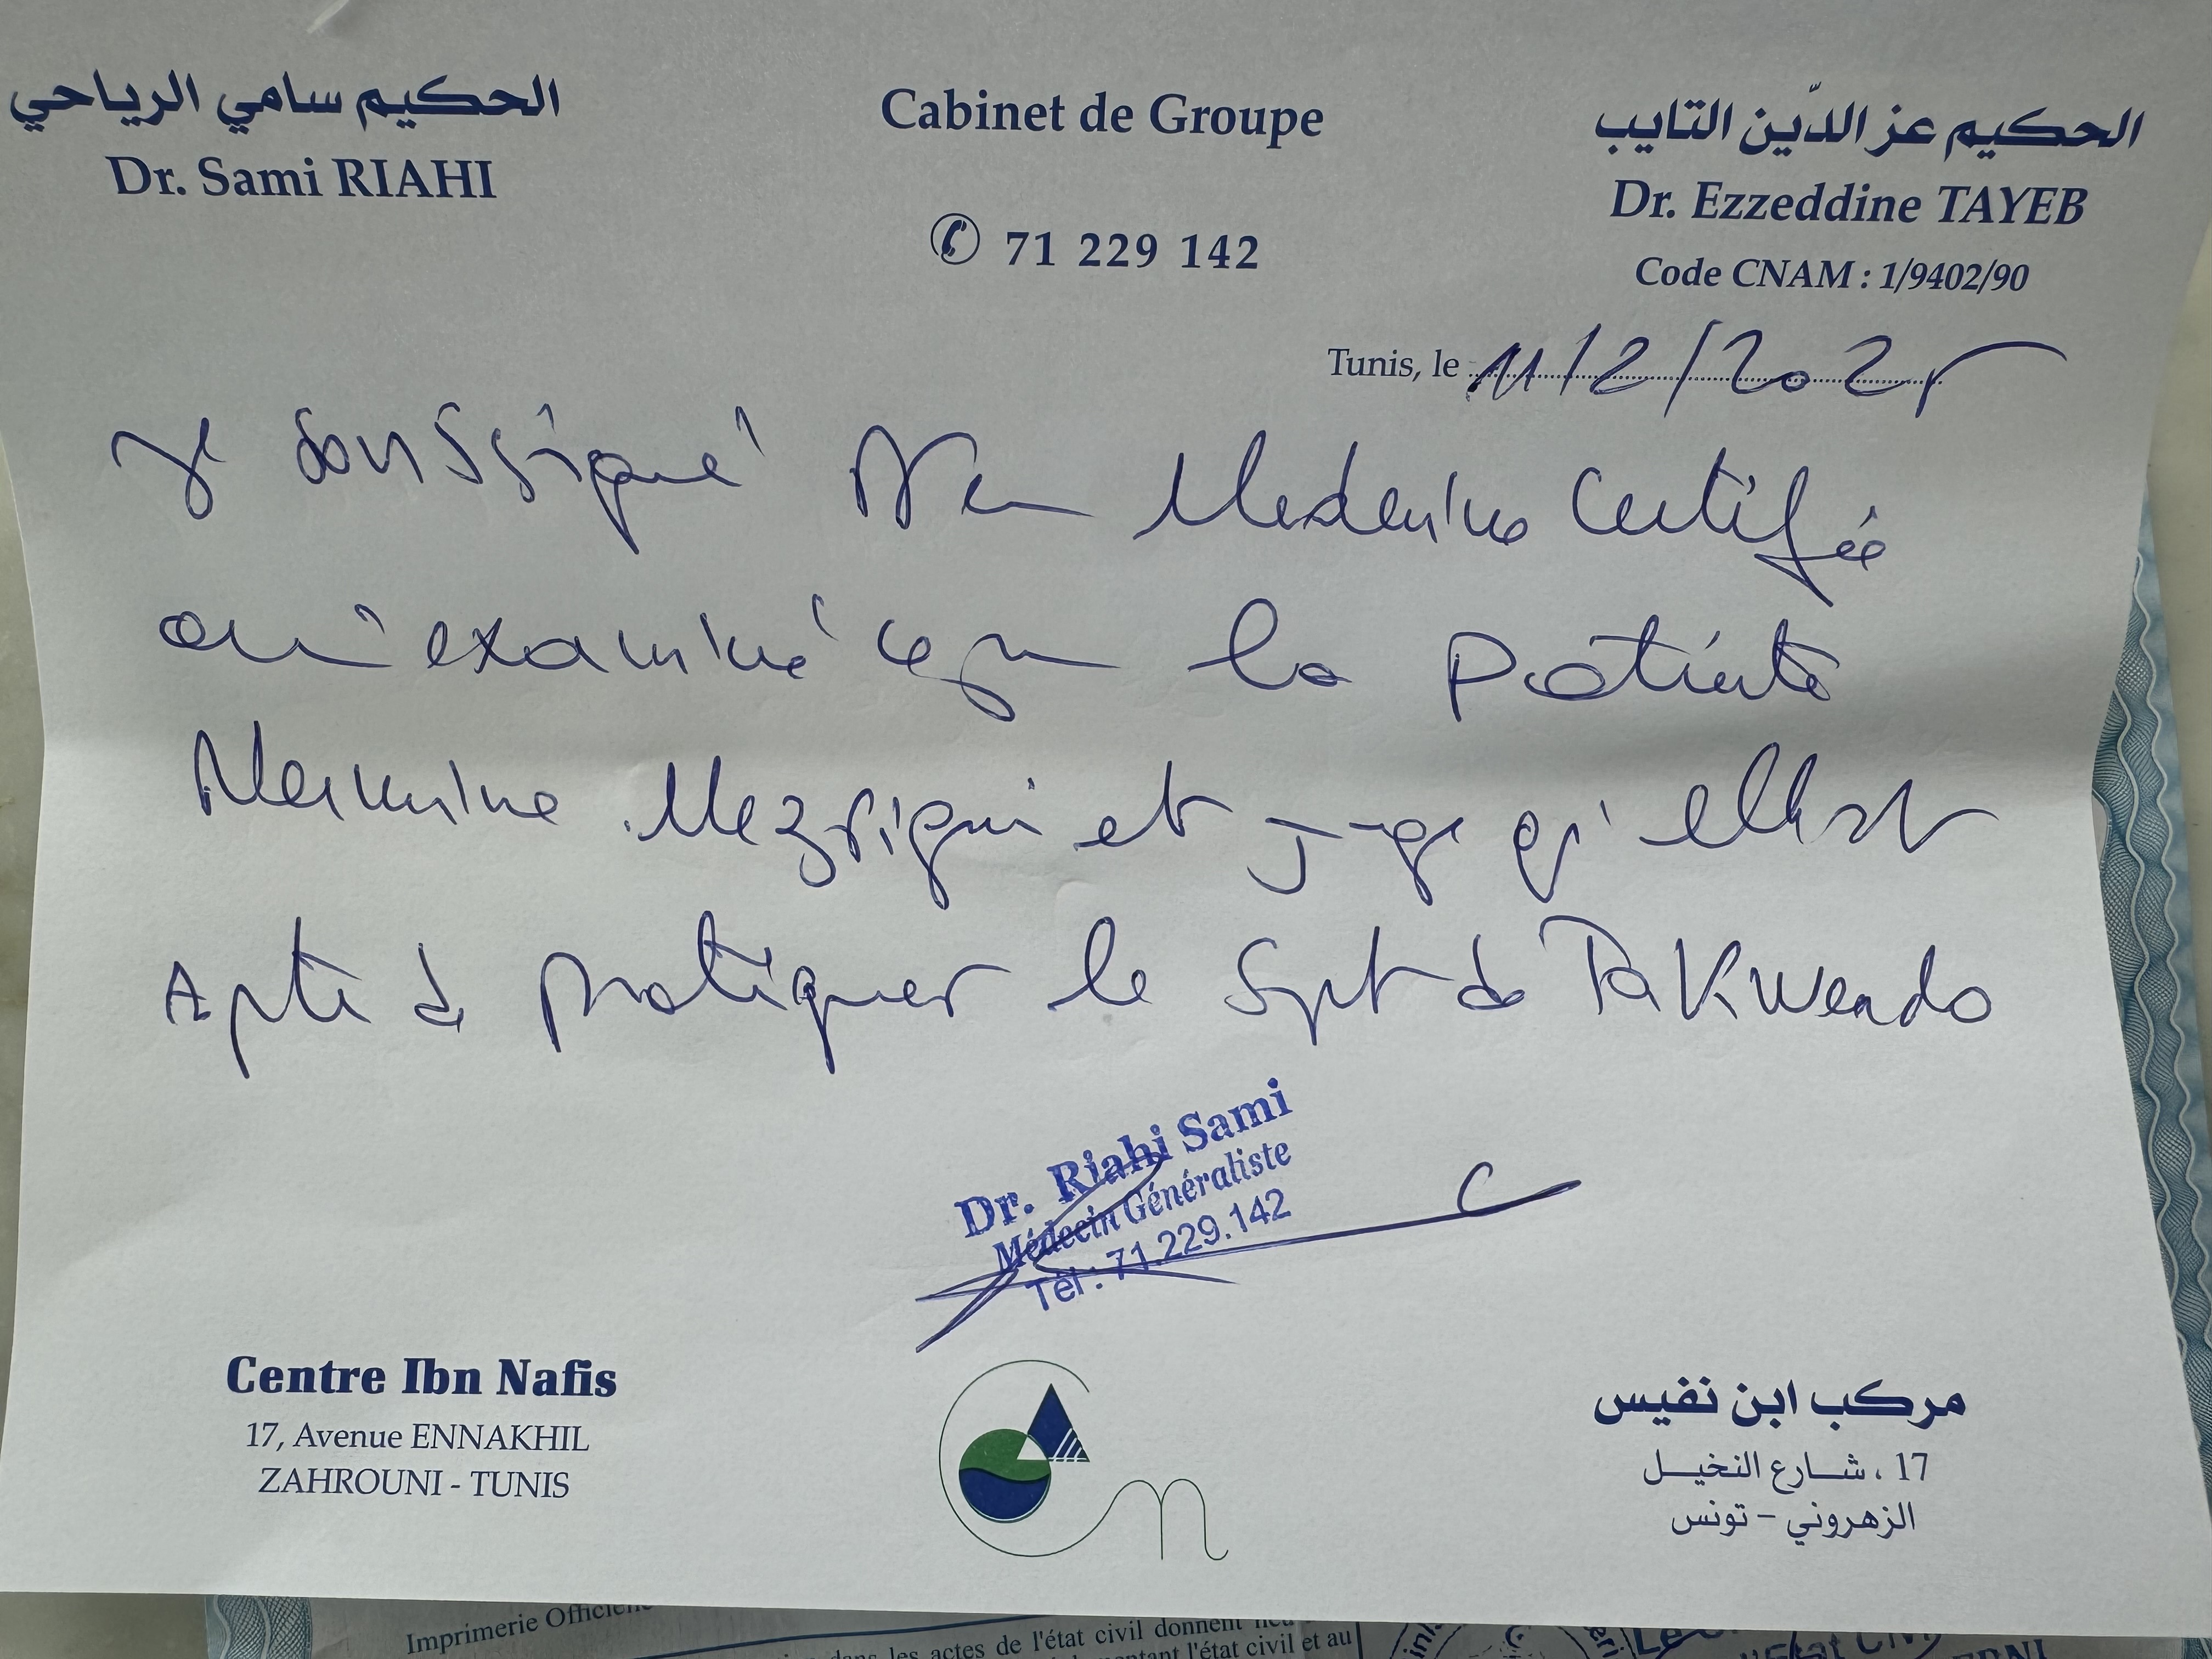 الحكيم سامي الرياحي
Dr. Sami RIAHI
Cabinet de Groupe
71 229 142
الحكيم عز الدّين التايب
Dr. Ezzeddine TAYEB
Code CNAM : 1/9402/90
Tunis, le 11/2/2025
Je soussigné Dr en Medecine Certifie
avoir examiné ce jour la Patiente
Nermine Mezrigui et juge qu'elle est
Apte à pratiquer le Sport de TaKwendo
Dr. Riahi Sami
Médecin Généraliste
Tél : 71.229.142
Centre Ibn Nafis
17, Avenue ENNAKHIL
ZAHROUNI - TUNIS
مركب ابن نفيس
17 ، شارع النخيل
الزهروني - تونس
Imprimerie Officielle
dans les actes de l'état civil donnent lieu
l'état civil et au